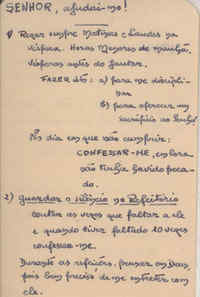 SENHOR, ajudai-me!
1) Rezar sempre Matinas e Laudes na
véspera. Horas Menores de manhã.
Vésperas antes do jantar.
FAZER isto: a) para me discipli-
nar
b) para oferecer um
sacrifício ao Senhor
No dia em que não cumprir:
CONFESSAR-ME, embora
não tenha havido peca-
do.
2) guardar o silêncio no Refeitório
contar as vezes que faltar a ele
e quando tiver faltado 10 vezes
confesso-me.
Durante as refeições, pensar em Deus,
pois bem preciso de me entreter com
ele.